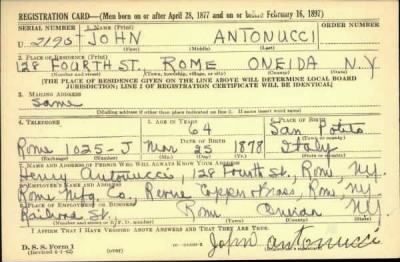 REGISTRATION CARD—(Men born on or after April 28, 1877 and on or before February 16, 1897)
SERIAL NUMBER 1. NAME (Print) ORDER NUMBER
U 2195 JOHN ANTONUCCI
(First) (Middle) (Last)
2. PLACE OF RESIDENCE (Print)
128 FOURTH ST., ROME ONEIDA N.Y
(Number and street) (Town, township, village, or city) (County) (State)
[THE PLACE OF RESIDENCE GIVEN ON THE LINE ABOVE WILL DETERMINE LOCAL BOARD
JURISDICTION; LINE 2 OF REGISTRATION CERTIFICATE WILL BE IDENTICAL]
3. MAILING ADDRESS
Same
[Mailing address if other than place indicated on line 2. If same insert word same]
4. TELEPHONE 5. AGE IN YEARS 6. PLACE OF BIRTH
64 San Potito
DATE OF BIRTH (Town or county)
Rome 1025-J Mar 25 1878 Italy
(Exchange) (Number) (Mo.) (Day) (Yr.) (State or country)
7. NAME AND ADDRESS OF PERSON WHO WILL ALWAYS KNOW YOUR ADDRESS
Henry Antonucci, 128 Fourth St., Rome, N.Y.
8. EMPLOYER'S NAME AND ADDRESS
Rome Mfg. Co., Revere Copper & Brass, Rome, N.Y.
9. PLACE OF EMPLOYMENT OR BUSINESS
Railroad St. Rome Oneida N.Y.
(Number and street or R. F. D. number) (Town) (County) (State)
I AFFIRM THAT I HAVE VERIFIED ABOVE ANSWERS AND THAT THEY ARE TRUE.
D. S. S. Form 1
(Revised 4-1-42) (over)
John Antonucci